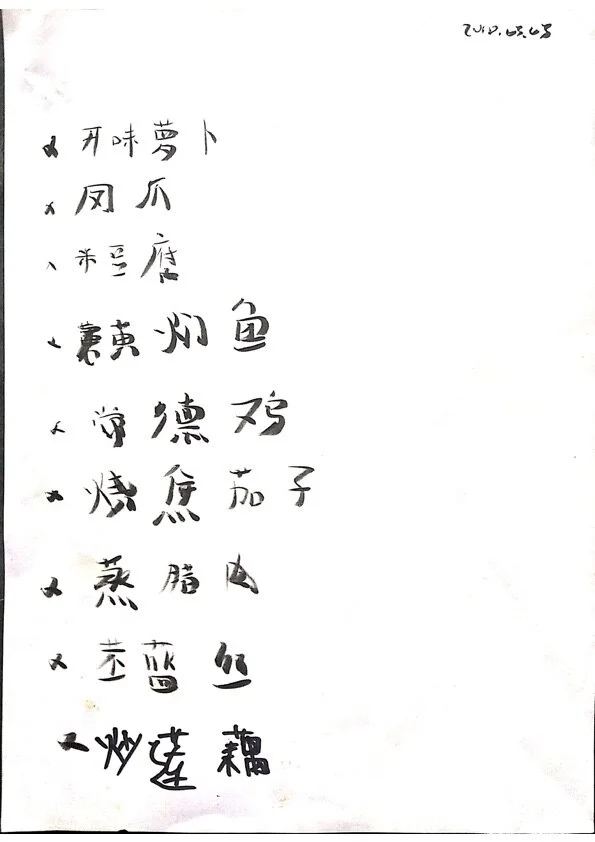 开味萝卜
凤爪
米豆腐
黄焖鱼
常德鸡
烧焦茄子
蒸腊肉
苤蓝丝
炒莲藕